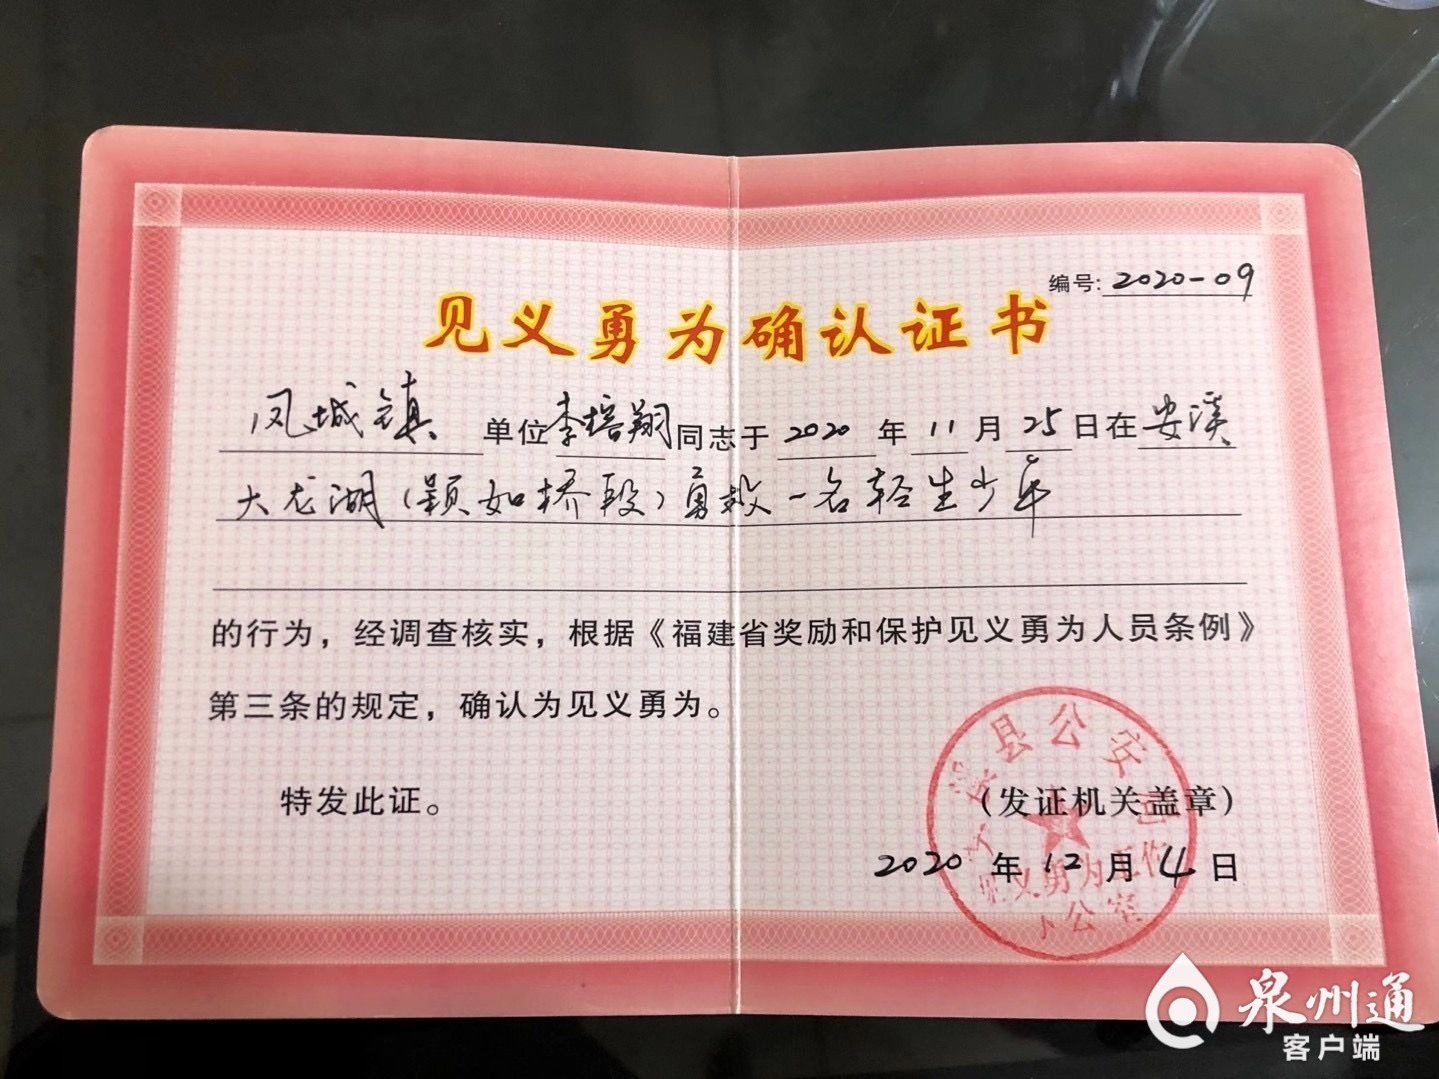 编号: 2020-09
见义勇为确认证书
凤城镇 单位 李培翔 同志于 2020 年 11 月 25 日在 安溪
大龙湖(颖如桥段)勇救一名轻生少年
的行为，经调查核实，根据《福建省奖励和保护见义勇为人员条例》
第三条的规定，确认为见义勇为。
特发此证。
(发证机关盖章)
2020 年 12 月 4 日
安溪县公安局
见义勇为工作
办公室
泉州通
客户端